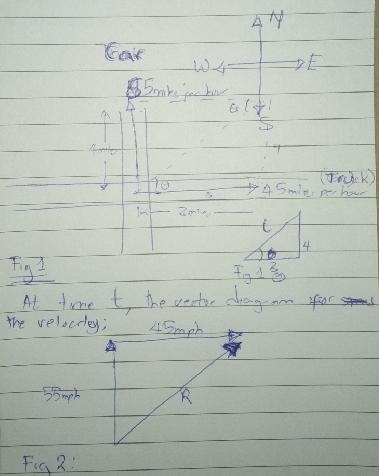 N
Car
W E
55 miles per hour
S
4
4 miles
θ
(Truck)
45 miles per hour
3 miles
4
Fig 1
Fig 1
At time t, the vector diagram for
the velocity;
45mph
55mph
R
Fig 2: